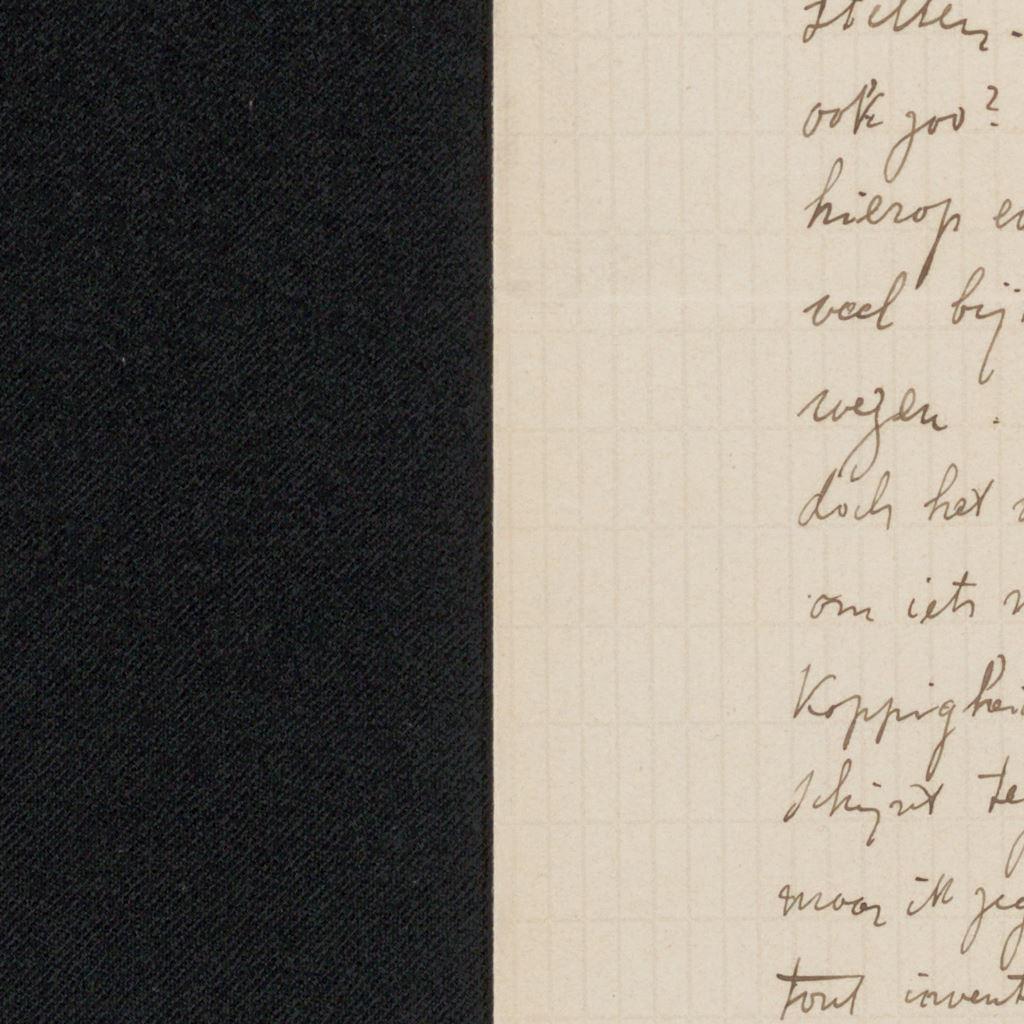 stellen.
ook zoo?
hierop
veel bij
wezen.
doch het
om iets
Koppighei
schijnt te
maar ik zeg
tout invent